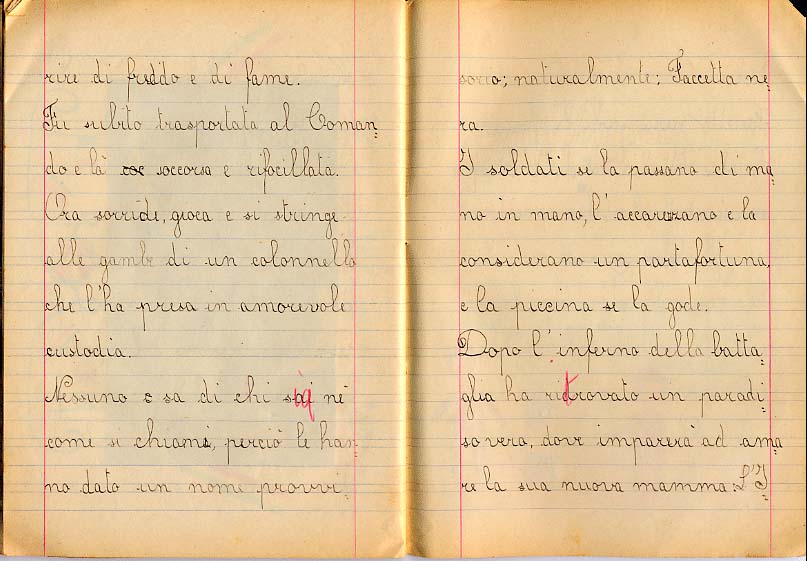 rire di freddo e di fame.
Fu subito trasportata al Coman=
do e là soccorsa e rifocillata.
Ora sorride, gioca e si stringe
alle gambe di un colonnello
che l'ha presa in amorevole
custodia.
Nessuno sa di chi sia né
come si chiami, perciò le han=
no dato un nome provvi=
sorio; naturalmente; Faccetta ne=
ra.
I soldati se la passano di ma=
no in mano, l'accarezzano e la
considerano un portafortuna,
e la piccina se la gode.
Dopo l'inferno della batta=
glia ha ritrovato un paradi=
so vero, dove imparerà ad ama=
re la sua nuova mamma: L'I=